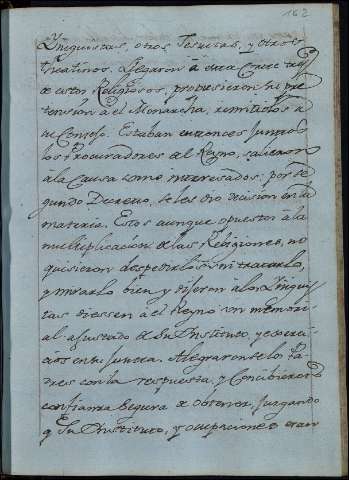 162
Linguistas, otros Jesuitas, y otros
Theatinos. Llegaron â esta Corte tres
de estos Religiosos, propusieron su pre
tension â el Monarcha, remitiolos a
su Consejo. Estaban entonces juntos
los Procuradores del Reyno, salieron
â la Causa como interesados: por se
gundo Decreto, se les dio decision en la
materia. Estos aunque opuestos â la
multiplicacion de las Religiones, no
quisieron despedirlos sin tratarlo,
y mirarlo bien y dijeron a los Lingui
tas diessen â el Reyno un memori
al ajustado de Su Instituto, y exerci
cios en su Junta. Alegraronse los Pa
dres con la respuesta, y Concibieron
confianza segura de obtener, juzgando
q Su Instituto, y ocupaciones eran